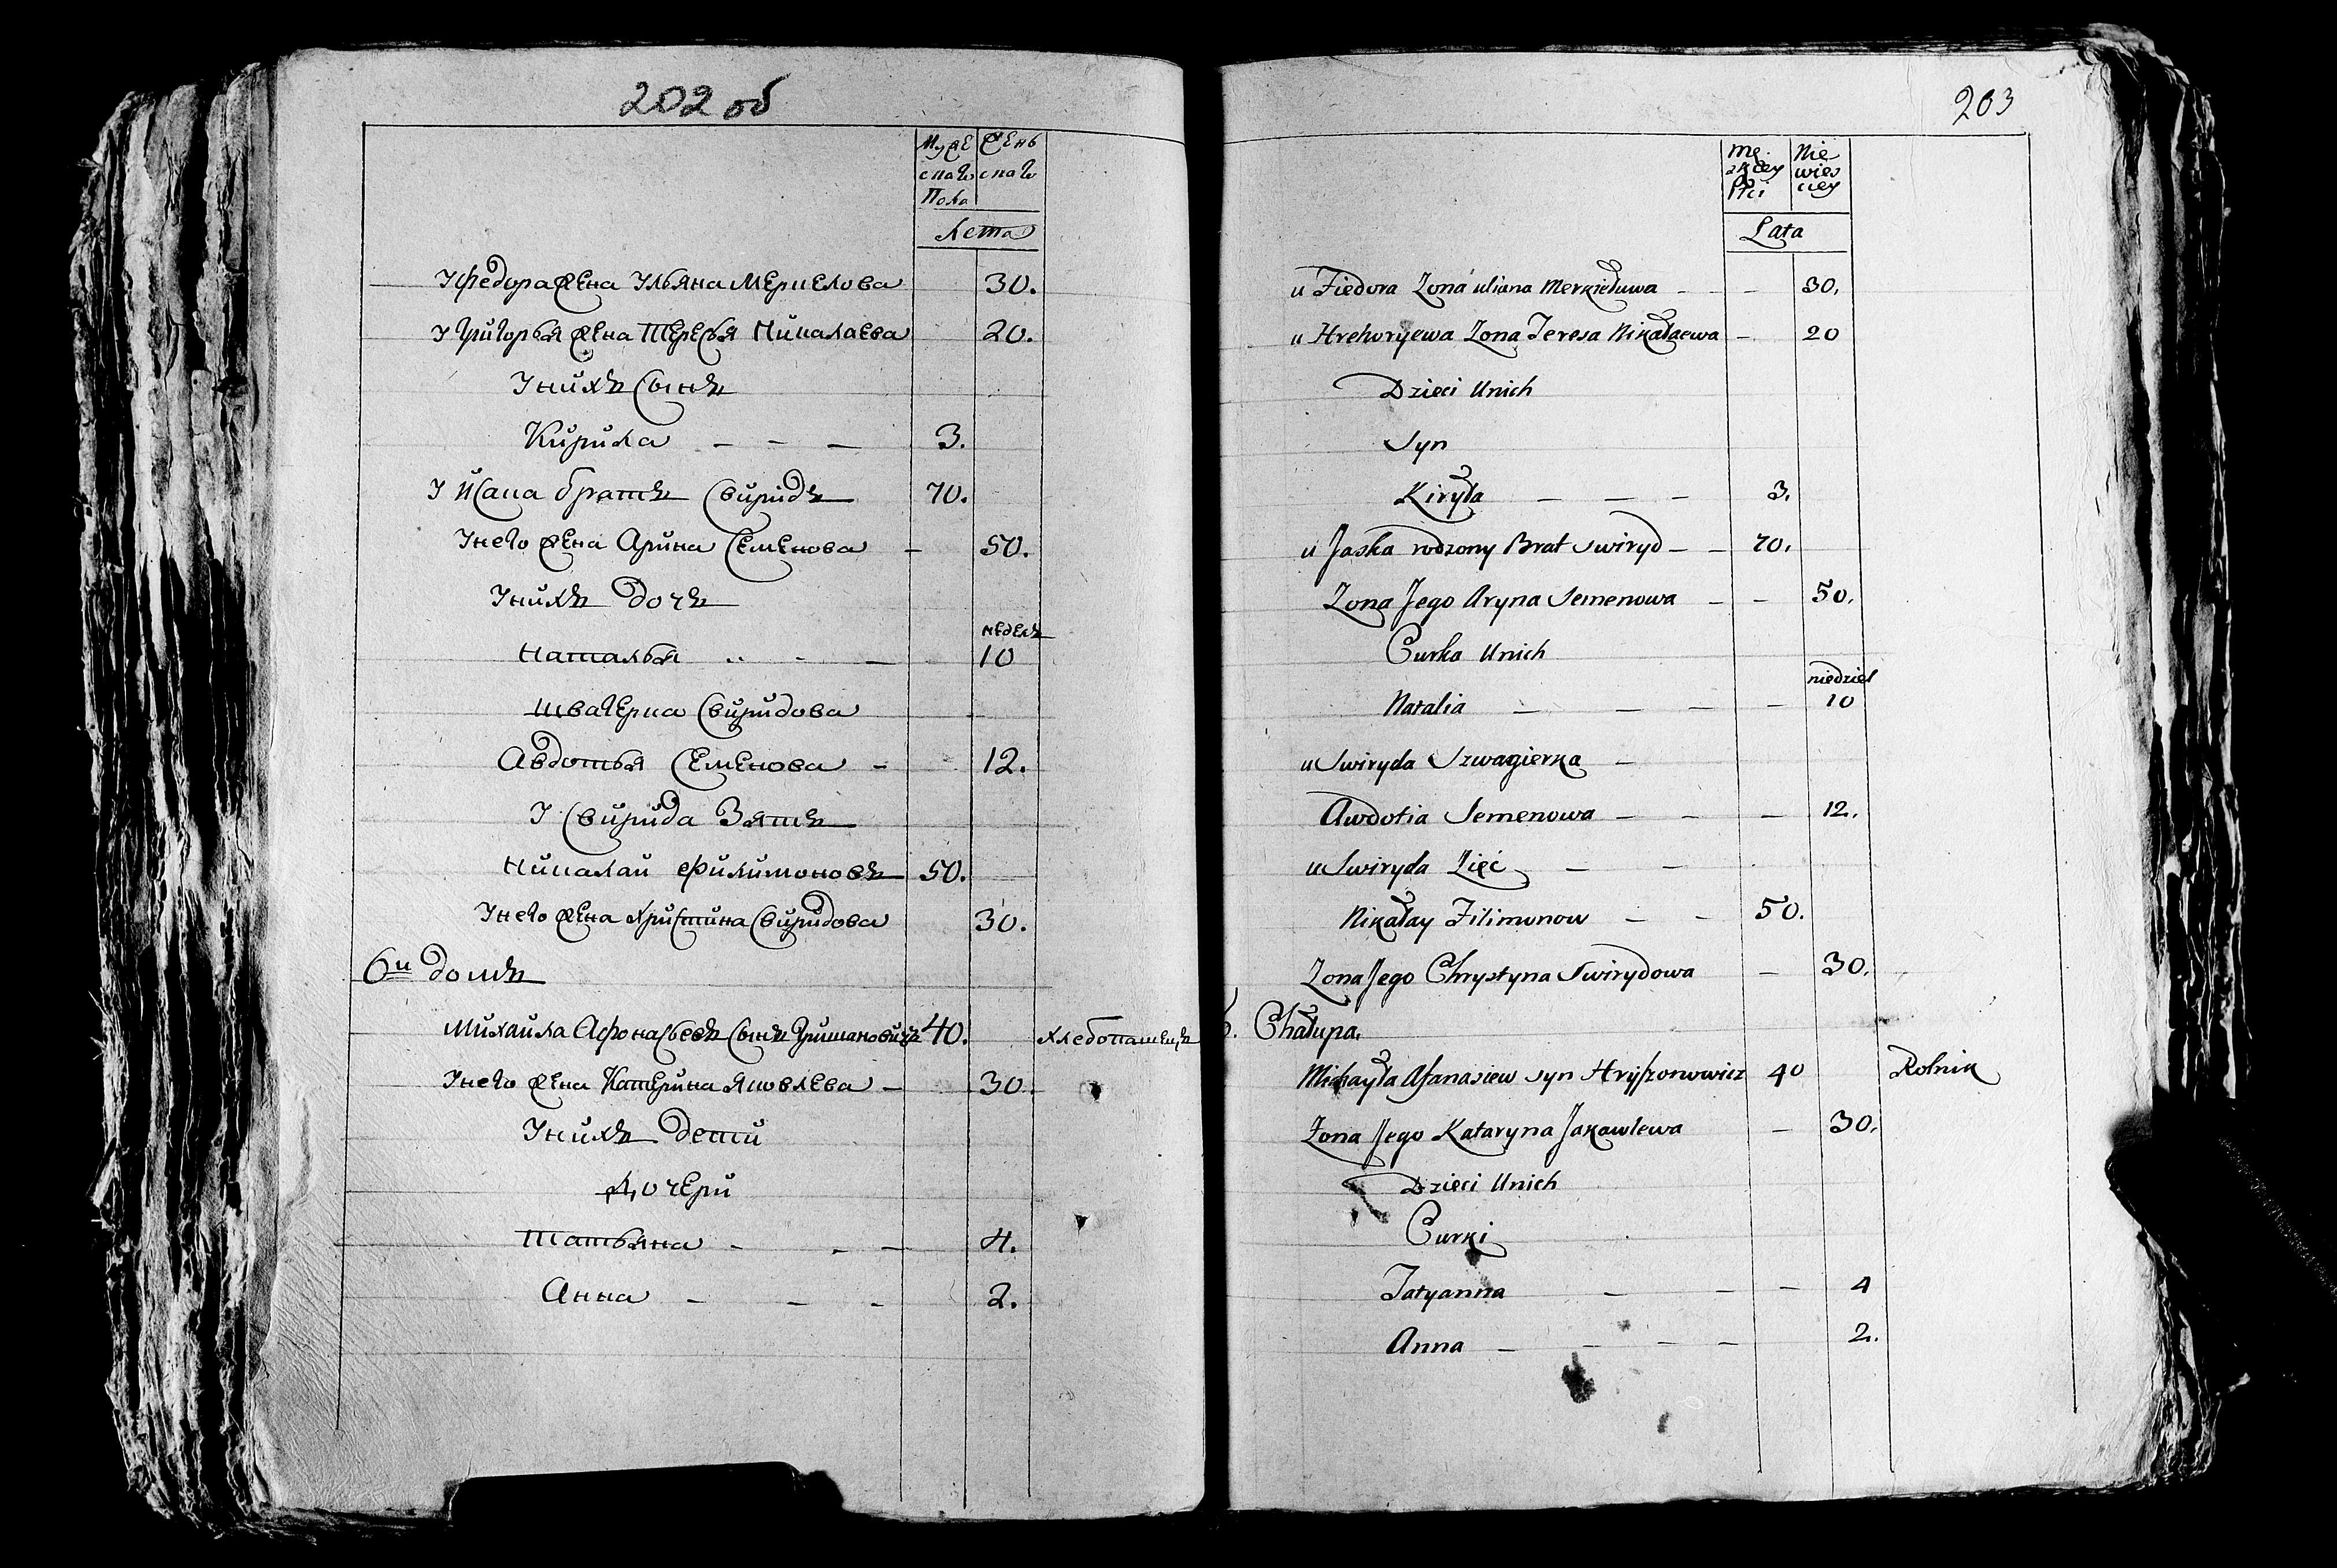 202 об
Муже Жень
скаго скаго
Пола
Лета
У Федора жена Ульяна Меркелова 30.
У Григорья жена Тересья Николаева 20.
У нихъ сынъ
Кирила — — — 3.
У Исака братъ Свиридъ 70.
У него жена Арина Семенова — 50.
У нихъ дочъ
недель
Наталья — — 10
швагерка Свиридова
Авдотья Семенова — 12.
У Свирида Зять
Николай Филимоновъ 50.
У него жена Христина Свиридова 30.
6й домъ
Михайла Афонасьевъ сынъ Гришановичъ 40. хлебопашецъ
У него жена Катерина Яковлева — 30.
У нихъ дети
Дочери
Татьяна — — — 4.
Анна — — — 2.
203
Mę Nie
zkiey wies
Płci ciey
Lata
u Fiedora Zona uliana Merkiełuwa — — — 30.
u Hrehoryewa Zona Teresa Nikałaewa — 20
Dzieci Unich
Syn
Kiryła — — — 3.
u Jaska rodzony Brat Swiryd — — 70.
Zona Jego Aryna Semenowa — — 50.
Curka Unich
niedziel
Natalia — — — — 10
u Swiryda Szwagierka —
Awdotia Semenowa — — — 12.
u Swiryda Zięć — —
Nikałay Filimonow — — 50.
Zona Jego Chrystyna Swirydowa — 30.
6. Chałupa.
Michayła Afanasiew syn Hryszonowicz 40 Rolnik
Zona Jego Kataryna Jakawlewa — 30.
Dzieci Unich
Curki
Tatyanna — — — 4
Anna — — — — 2.